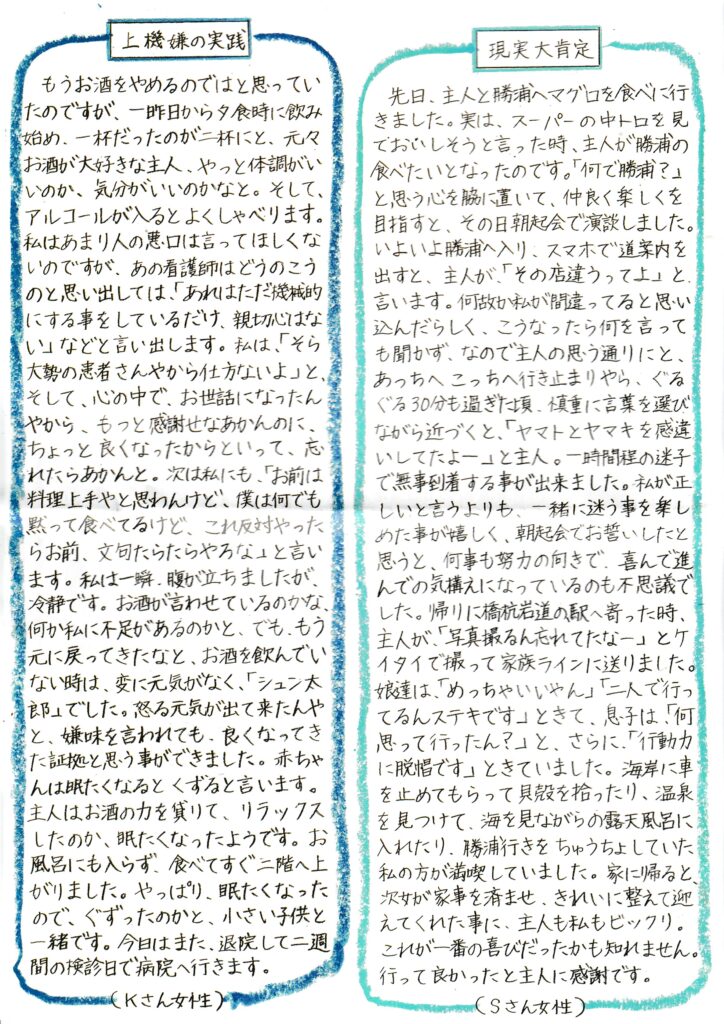 上機嫌の実践
もうお酒をやめるのではと思ってい
たのですが、一昨日から夕食時に飲み
始め、一杯だったのが二杯にと、元々
お酒が大好きな主人、やっと体調がい
いのか、気分がいいのかなと。そして、
アルコールが入るとよくしゃべります。
私はあまり人の悪口は言ってほしくな
いのですが、あの看護師はどうのこう
のと思い出しては、「あれはただ機械的
にする事をしているだけ、親切心はな
い」などと言い出します。私は、「そら
大勢の患者さんやから仕方ないよ」と、
そして、心の中で、お世話になったん
やから、もっと感謝せなあかんのに、
ちょっと良くなったからといって、忘
れたらあかんと。次は私にも、「お前は
料理上手やと思わんけど、僕は何でも
黙って食べてるけど、これ反対やった
らお前、文句たらたらやろな」と言い
ます。私は一瞬、腹が立ちましたが、
冷静です。お酒が言わせているのかな、
何か私に不足があるのかと、でも、もう
元に戻ってきたなと、お酒を飲んでい
ない時は、変に元気がなく、「シュン太
郎」でした。怒る元気が出て来たんや
と、嫌味を言われても、良くなってき
た証拠と思う事ができました。赤ちゃ
んは眠たくなるとくずると言います。
主人はお酒の力を貸りて、リラックス
したのか、眠たくなったようです。お
風呂にも入らず、食べてすぐ二階へ上
がりました。やっぱり、眠たくなった
ので、ぐずったのかと、小さい子供と
一緒です。今日はまた、退院して二週
間の検診日で病院へ行きます。
(Kさん女性)
現実大肯定
先日、主人と勝浦へマグロを食べに行
きました。実は、スーパーの中トロを見
ておいしそうと言った時、主人が勝浦の
食べたいとなったのです。「何で勝浦？」
と思う心を脇に置いて、仲良く楽しくを
目指すと、その日朝起会で演談しました。
いよいよ勝浦へ入り、スマホで道案内を
出すと、主人が、「その店違うってよ」と
言います。何故か私が間違ってると思い
込んだらしく、こうなったら何を言って
も聞かず、なので主人の思う通りにと、
あっちへこっちへ行き止まりやら、ぐる
ぐる30分も過ぎた頃、慎重に言葉を選び
ながら近づくと、「ヤマトとヤマキを感違
いしてたよー」と主人。一時間程の迷子
で無事到着する事が出来ました。私が正
しいと言うよりも、一緒に迷う事を楽し
めた事が嬉しく、朝起会でお誓いしたと
思うと、何事も努力の向きで、喜んで進
んでの気構えになっているのも不思議で
した。帰りに橋杭岩道の駅へ寄った時、
主人が、「写真撮るん忘れてたなー」とケ
イタイで撮って家族ラインに送りました。
娘達は、「めっちゃいいやん」「二人で行っ
てるんステキです」ときて、息子は、「何
思って行ったん？」と、さらに、「行動力
に脱帽です」ときていました。海岸に車
を止めてもらって貝殻を拾ったり、温泉
を見つけて、海を見ながらの露天風呂に
入れたり、勝浦行きをちゅうちょしていた
私の方が満喫していました。家に帰ると、
次女が家事を済ませ、きれいに整えて迎
えてくれた事に、主人も私もビックリ。
これが一番の喜びだったかも知れません。
行って良かったと主人に感謝です。
(Sさん女性)